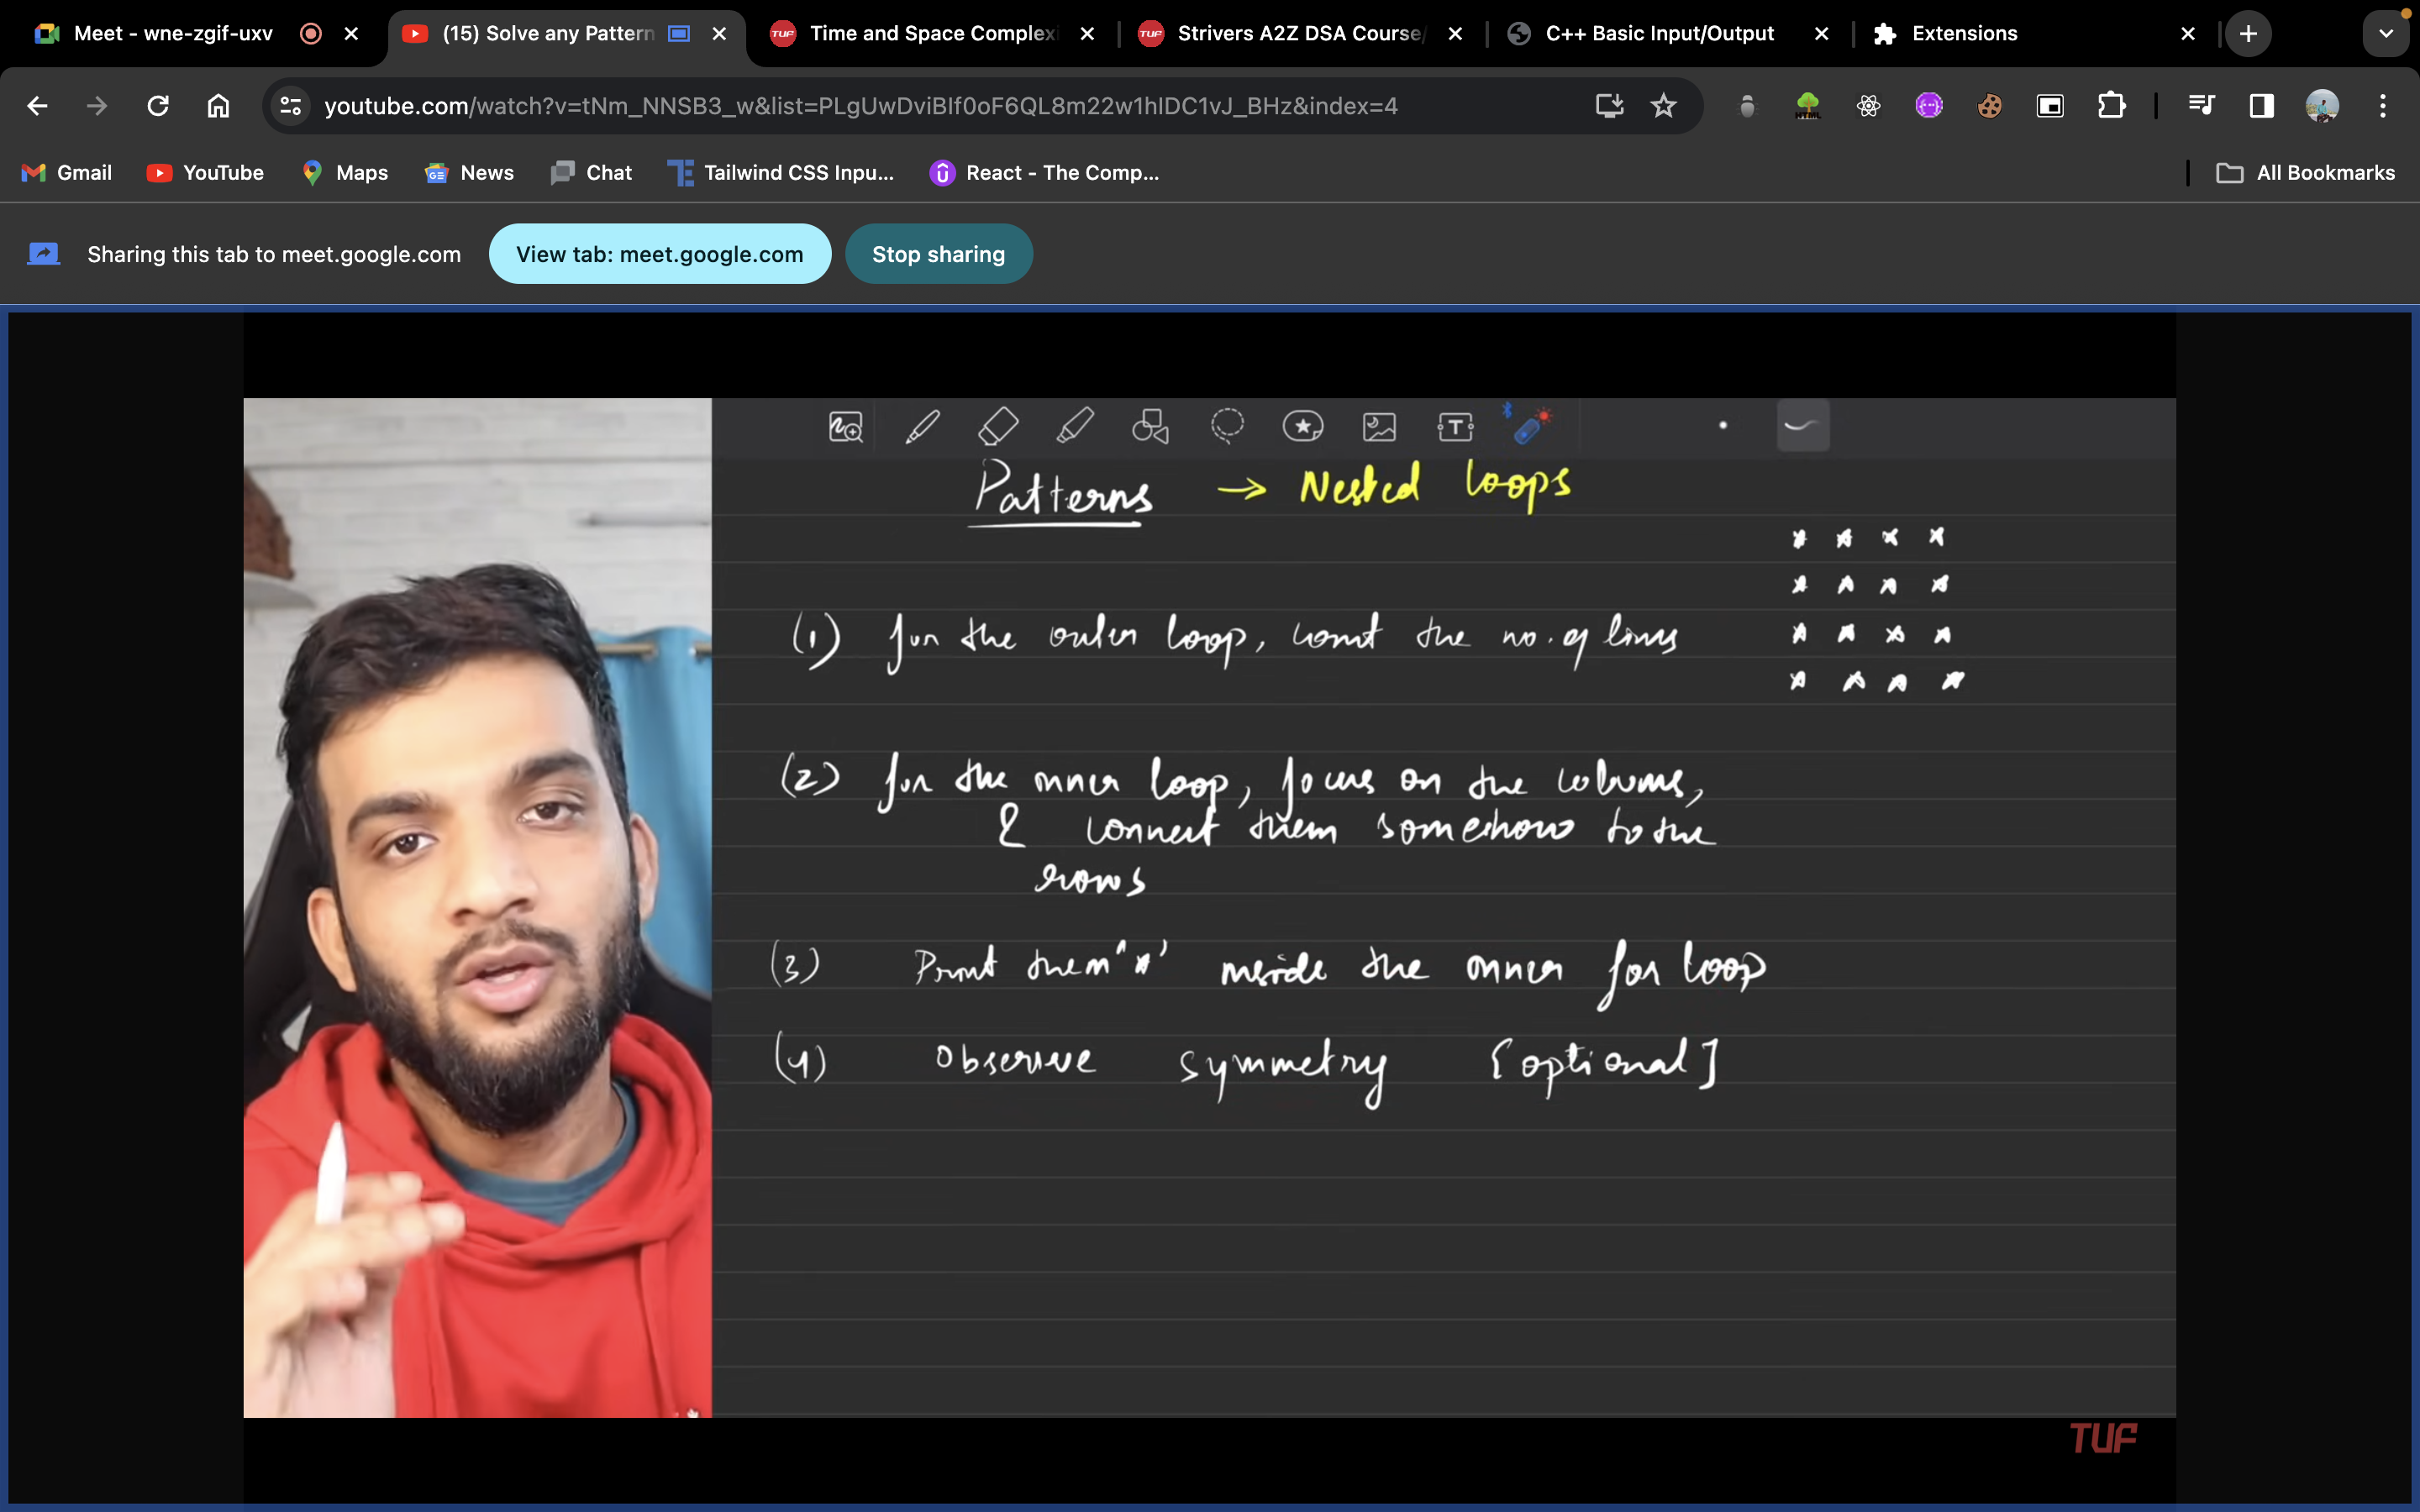 Meet - wne-zgif-uxv
(15) Solve any Pattern
TUF Time and Space Complexi
TUF Strivers A2Z DSA Course/
C++ Basic Input/Output
Extensions
youtube.com/watch?v=tNm_NNSB3_w&list=PLgUwDviBIf0oF6QL8m22w1hIDC1vJ_BHz&index=4
HTML
Gmail
YouTube
Maps
GE News
Chat
Tailwind CSS Inpu...
React - The Comp...
All Bookmarks
Sharing this tab to meet.google.com
View tab: meet.google.com
Stop sharing
T
Patterns → Nested loops
* * * *
* * * *
* * * *
* * * *
(1) for the outer loop, count the no. of lines
(2) for the inner loop, focus on the columns,
& connect them somehow to the
rows
(3) Print them '*' inside the inner for loop
(4) Observe symmetry [optional]
TUF